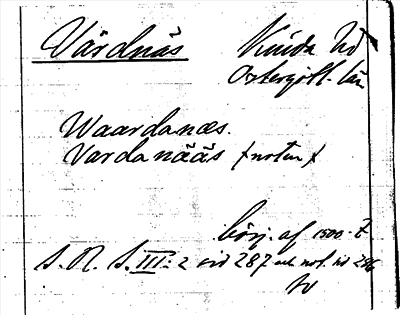 Värdnäs Kinda hd
Östergötl. län
Waardanæs.
Vardanääs (noten)
börj. af 1500-t
S. R. S. III: 2 sid 287 och not. sid 286